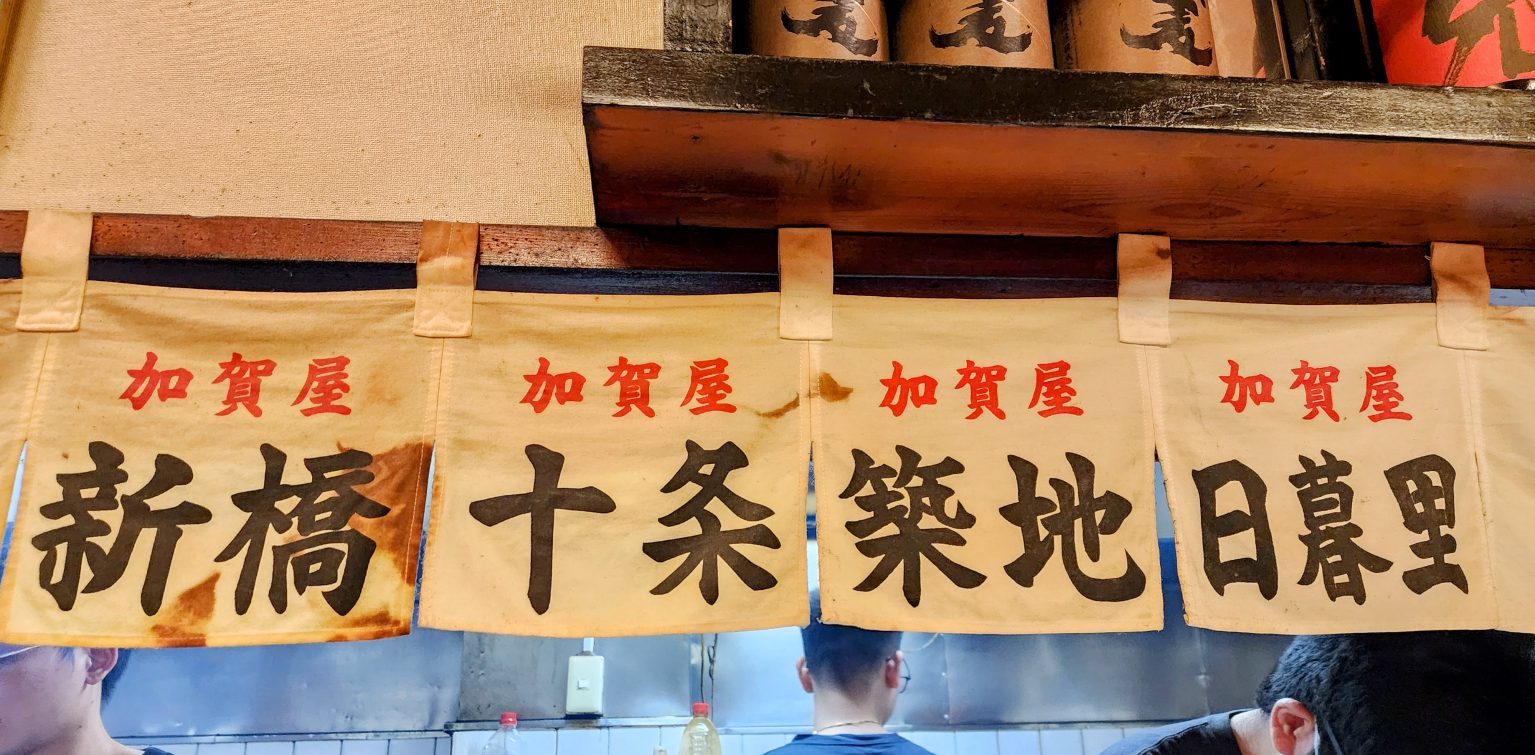 加賀屋
新橋
加賀屋
十条
加賀屋
築地
加賀屋
日暮里